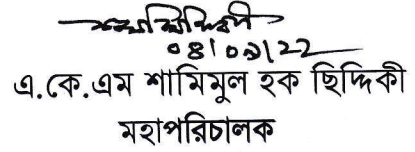 ০৪/০৭/২২
এ.কে.এম শামিমুল হক ছিদ্দিকী
মহাপরিচালক